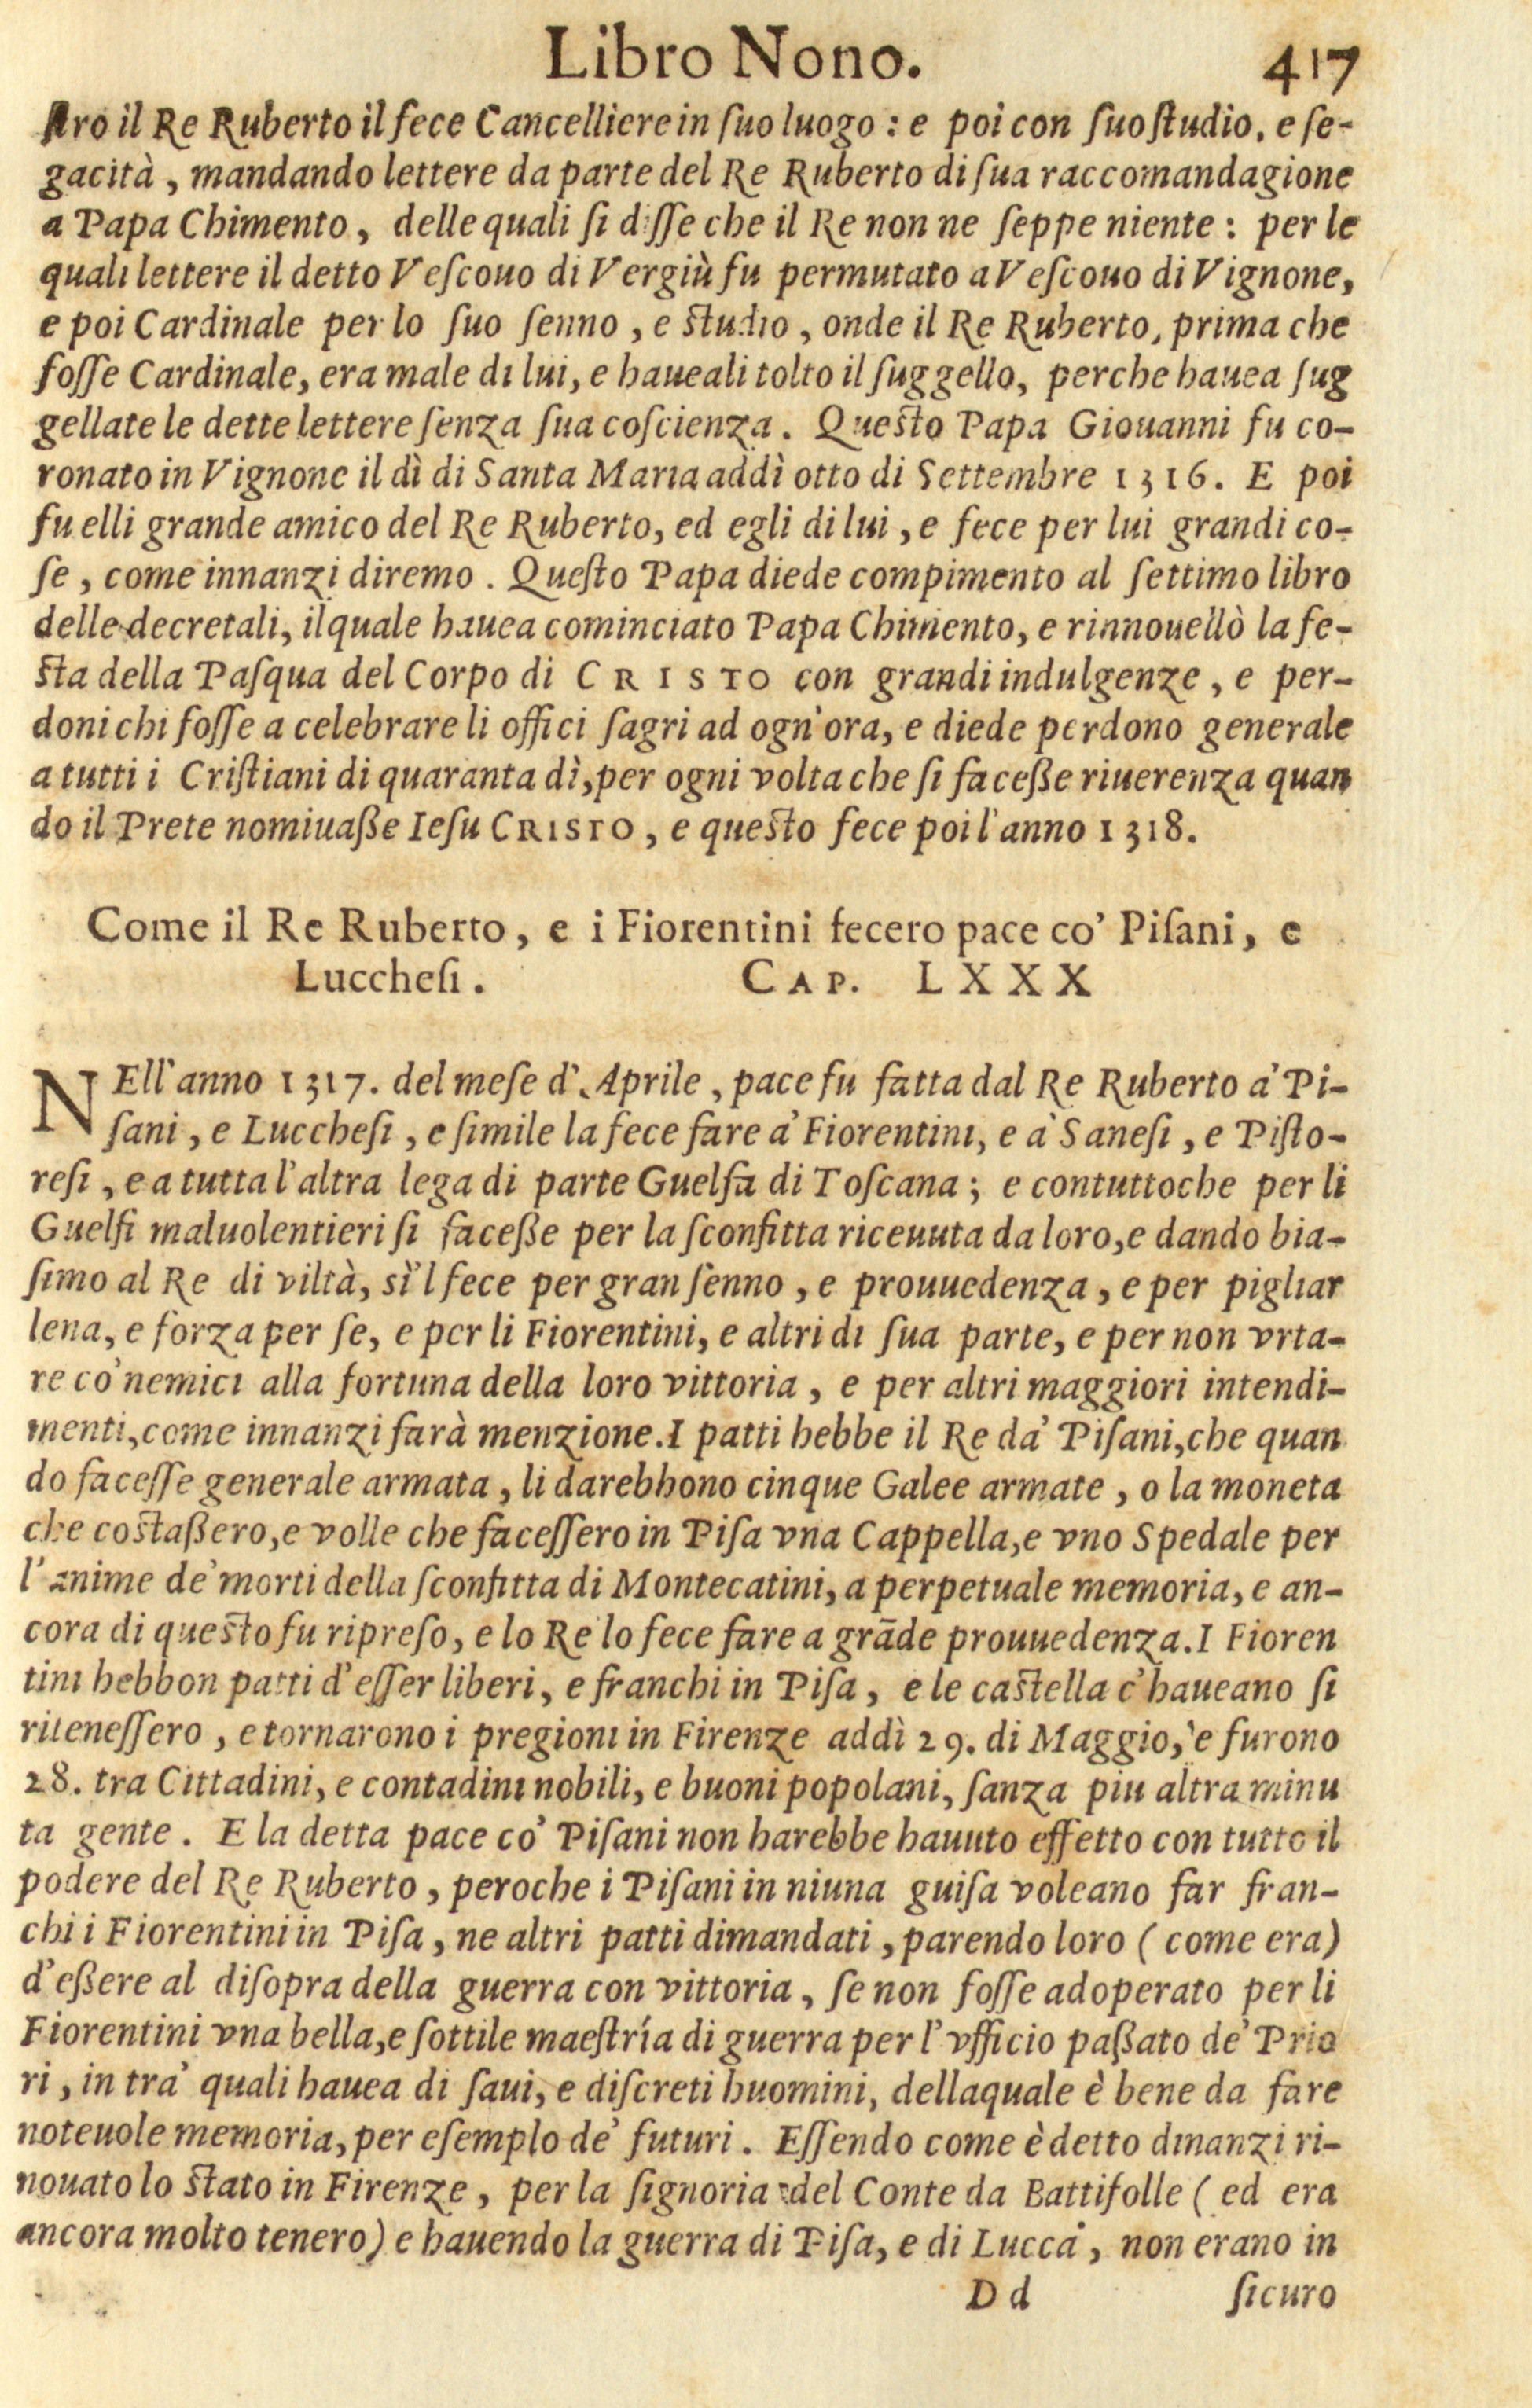 Libro Nono. 417
stro il Re Ruberto il fece Cancelliere in ſuo luogo : e poi con ſuo ſtudio, e ſe-
gacità, mandando lettere da parte del Re Ruberto di ſua raccomandagione
a Papa Chimento, delle quali ſi diſſe che il Re non ne ſeppe niente : per le
quali lettere il detto Veſcouo di Vergiù fu permutato a Veſcouo di Vignone,
e poi Cardinale per lo ſuo ſenno, e ſtudio, onde il Re Ruberto, prima che
foſſe Cardinale, era male di lui, e haueali tolto il ſuggello, perche hauea ſug
gellate le dette lettere ſenza ſua coſcienza. Queſto Papa Giouanni fu co-
ronato in Vignone il dì di Santa Maria addì otto di Settembre 1316. E poi
fu elli grande amico del Re Ruberto, ed egli di lui, e fece per lui grandi co-
ſe, come innanzi diremo. Queſto Papa diede compimento al ſettimo libro
delle decretali, il quale hauea cominciato Papa Chimento, e rinnouellò la fe-
ſta della Paſqua del Corpo di CRISTO con grandi indulgenze, e per-
doni chi foſſe a celebrare li offici ſagri ad ogn'ora, e diede perdono generale
a tutti i Criſtiani di quaranta dì, per ogni volta che ſi faceße riuerenza quan
do il Prete nomiuaße Ieſu CRISTO, e queſto fece poi l'anno 1318.
Come il Re Ruberto, e i Fiorentini fecero pace co' Piſani, e
Luccheſi. CAP. LXXX
NEll'anno 1317. del meſe d'Aprile, pace fu fatta dal Re Ruberto a' Pi-
ſani, e Luccheſi, e ſimile la fece fare a' Fiorentini, e a' Saneſi, e Piſto-
reſi, e a tutta l'altra lega di parte Guelfa di Toſcana ; e contuttoche per li
Guelfi maluolentieri ſi faceße per la ſconfitta riceuuta da loro, e dando bia-
ſimo al Re di viltà, sì'l fece per gran ſenno, e prouuedenza, e per pigliar
lena, e forza per ſe, e per li Fiorentini, e altri di ſua parte, e per non vrta-
re co' nemici alla fortuna della loro vittoria, e per altri maggiori intendi-
menti, come innanzi farà menzione. I patti hebbe il Re da' Piſani, che quan
do faceſſe generale armata, li darebbono cinque Galee armate, o la moneta
che coſtaßero, e volle che faceſſero in Piſa vna Cappella, e vno Spedale per
l'anime de' morti della ſconfitta di Montecatini, a perpetuale memoria, e an-
cora di queſto fu ripreſo, e lo Re lo fece fare a grāde prouuedenza. I Fioren
tini hebbon patti d'eſſer liberi, e franchi in Piſa, e le caſtella c'haueano ſi
riteneſſero, e tornarono i pregioni in Firenze addì 29. di Maggio, e furono
28. tra Cittadini, e contadini nobili, e buoni popolani, ſanza piu altra minu
ta gente. E la detta pace co' Piſani non harebbe hauuto effetto con tutto il
podere del Re Ruberto, peroche i Piſani in niuna guiſa voleano far fran-
chi i Fiorentini in Piſa, ne altri patti dimandati, parendo loro (come era)
d'eßere al diſopra della guerra con vittoria, ſe non foſſe adoperato per li
Fiorentini vna bella, e ſottile maeſtría di guerra per l'vfficio paßato de' Prio
ri, in tra' quali hauea di ſaui, e diſcreti huomini, dellaquale è bene da fare
noteuole memoria, per eſemplo de' futuri. Eſſendo come è detto dinanzi ri-
nouato lo ſtato in Firenze, per la ſignoria del Conte da Battifolle (ed era
ancora molto tenero) e hauendo la guerra di Piſa, e di Lucca, non erano in
Dd ſicuro